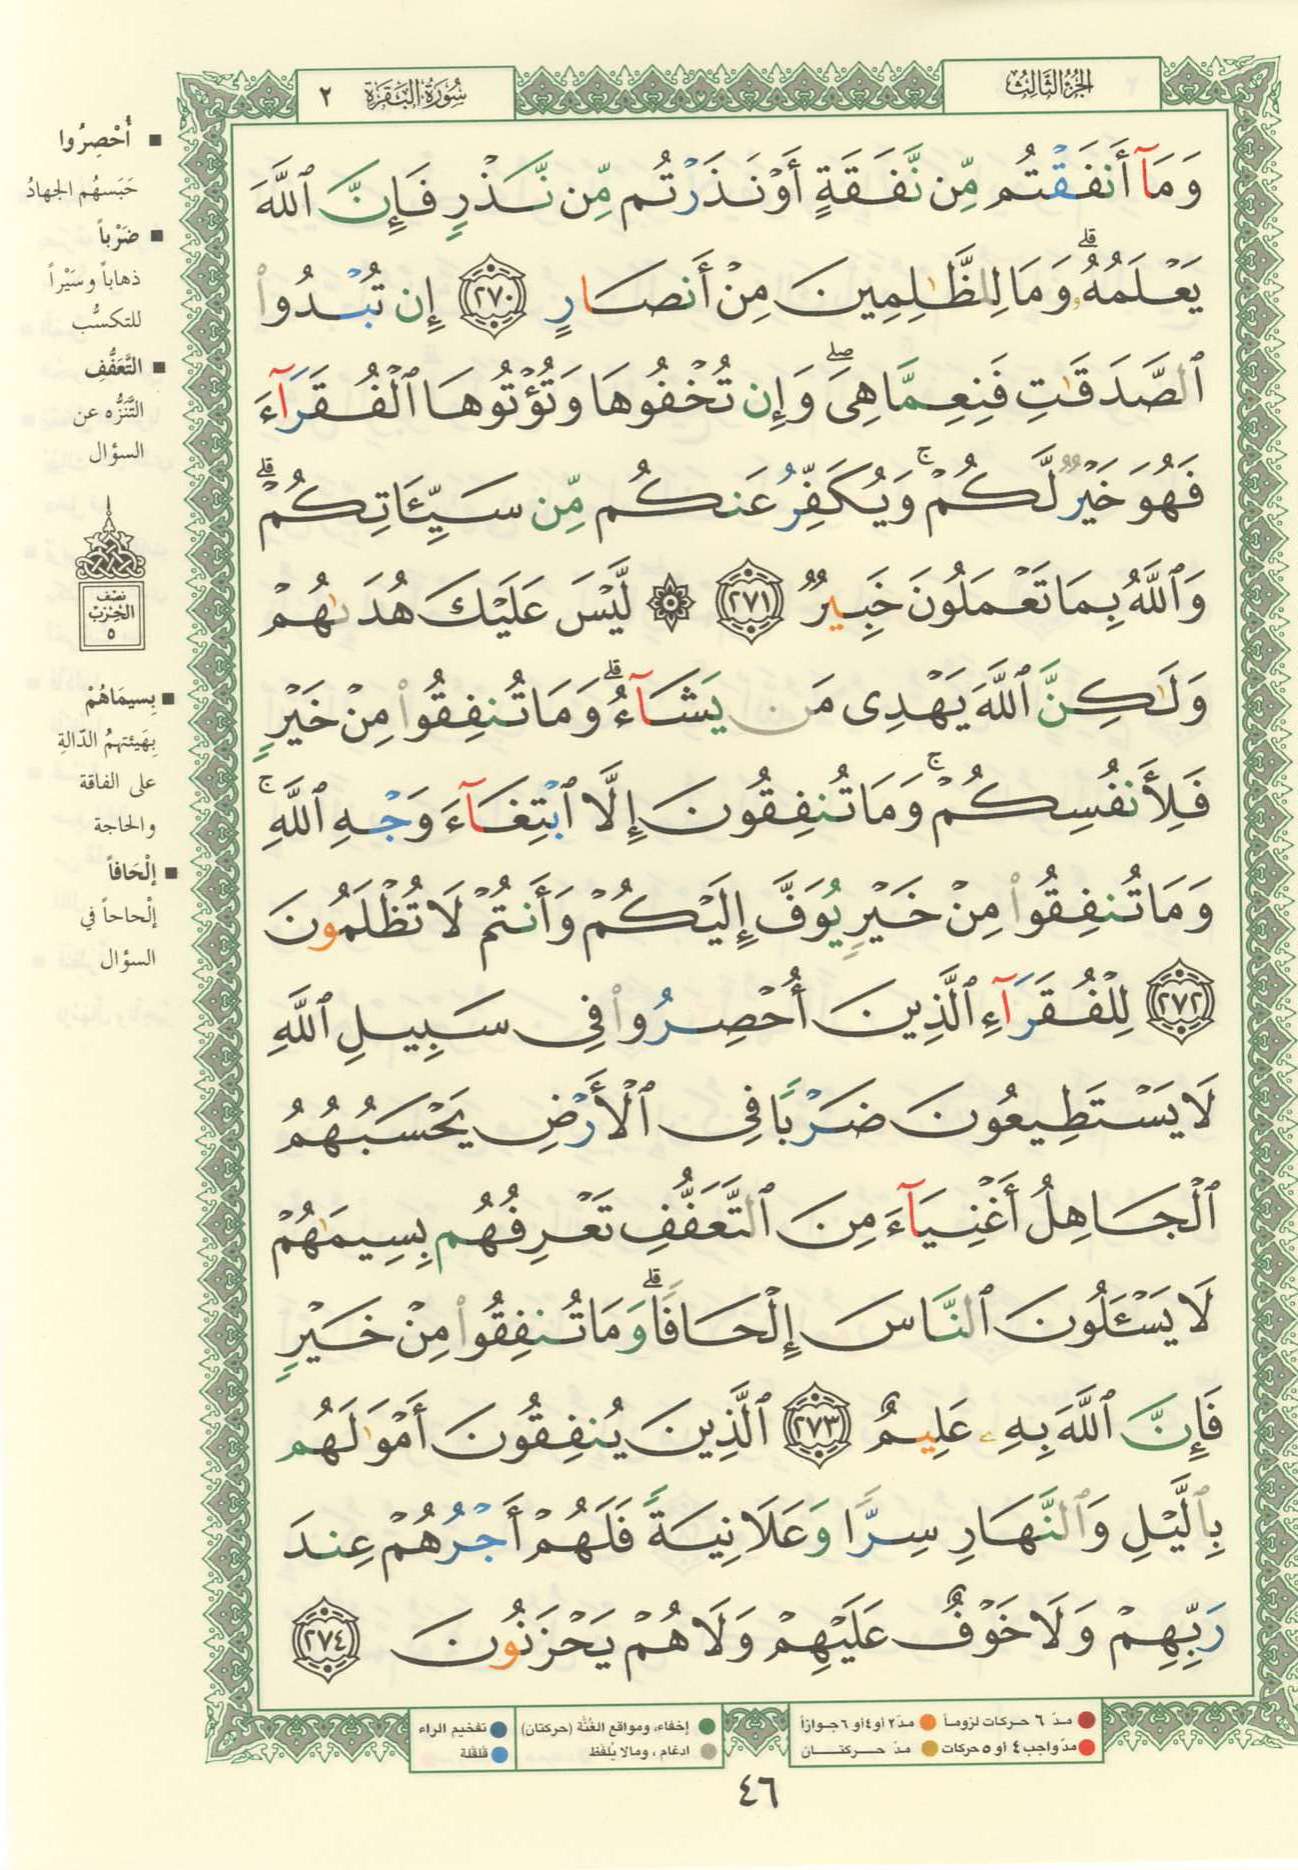 الجزء الثالث
سُورَةُ البَقَرَة ٢
وَمَآ أَنفَقْتُم مِّن نَّفَقَةٍ أَوْ نَذَرْتُم مِّن نَّذْرٍ فَإِنَّ ٱللَّهَ
يَعْلَمُهُۥ ۗ وَمَا لِلظَّٰلِمِينَ مِنْ أَنصَارٍ ٢٧٠ إِن تُبْدُوا۟
ٱلصَّدَقَٰتِ فَنِعِمَّا هِىَ ۖ وَإِن تُخْفُوهَا وَتُؤْتُوهَا ٱلْفُقَرَآءَ
فَهُوَ خَيْرٌ لَّكُمْ ۚ وَيُكَفِّرُ عَنكُم مِّن سَيِّـَٔاتِكُمْ ۗ
وَٱللَّهُ بِمَا تَعْمَلُونَ خَبِيرٌ ٢٧١ ۞ لَّيْسَ عَلَيْكَ هُدَىٰهُمْ
وَلَٰكِنَّ ٱللَّهَ يَهْدِى مَن يَشَآءُ ۗ وَمَا تُنفِقُوا۟ مِنْ خَيْرٍ
فَلِأَنفُسِكُمْ ۚ وَمَا تُنفِقُونَ إِلَّا ٱبْتِغَآءَ وَجْهِ ٱللَّهِ ۚ
وَمَا تُنفِقُوا۟ مِنْ خَيْرٍ يُوَفَّ إِلَيْكُمْ وَأَنتُمْ لَا تُظْلَمُونَ
٢٧٢ لِلْفُقَرَآءِ ٱلَّذِينَ أُحْصِرُوا۟ فِى سَبِيلِ ٱللَّهِ
لَا يَسْتَطِيعُونَ ضَرْبًا فِى ٱلْأَرْضِ يَحْسَبُهُمُ
ٱلْجَاهِلُ أَغْنِيَآءَ مِنَ ٱلتَّعَفُّفِ تَعْرِفُهُم بِسِيمَٰهُمْ
لَا يَسْـَٔلُونَ ٱلنَّاسَ إِلْحَافًا ۗ وَمَا تُنفِقُوا۟ مِنْ خَيْرٍ
فَإِنَّ ٱللَّهَ بِهِۦ عَلِيمٌ ٢٧٣ ٱلَّذِينَ يُنفِقُونَ أَمْوَٰلَهُم
بِٱلَّيْلِ وَٱلنَّهَارِ سِرًّا وَعَلَانِيَةً فَلَهُمْ أَجْرُهُمْ عِندَ
رَبِّهِمْ وَلَا خَوْفٌ عَلَيْهِمْ وَلَا هُمْ يَحْزَنُونَ ٢٧٤
■ أُحْصِرُوا
حَبَسهُم الجهادُ
■ ضَرْباً
ذهاباً وسَيْراً
للتكسُّب
■ التَّعَفُّفِ
التَّنَزُّه عن
السؤال
نصف
الحزب
٥
■ بِسيمَاهُمْ
بِهَيئتهِمُ الدّالةِ
على الفاقة
والحاجة
■ إلْحَافاً
إلْحاحاً في
السؤال
مدّ ٦ حركات لزوماً ● مدّ ٢ أو ٤ أو ٦ جوازاً
مدّ واجب ٤ أو ٥ حركات ● مدّ حركتان
إخفاء، ومواقع الغُنَّة (حركتان)
ادغام، ومالا يُلفَظ
تفخيم الراء
قلقلة
٤٦